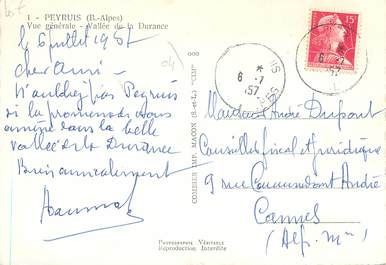 1 - PEYRUIS (B.-Alpes)
Vue générale - Vallée de la Durance
le 6 juillet 1957
cher ami -
N'oubliez pas Peyruis
si la promenade vous
amène dans la belle
vallée de la Durance
Bien amicalement
04
COMBIER IMP. MACON (S.-et-L.) "CIM"
PHOTOGRAPHIE VÉRITABLE
Reproduction Interdite
15
6 - 7
57
6 - 7
57
Monsieur André Dupont
Conseiller fiscal et juridique
9 rue Commandant André
Cannes
(Alp. Mmes)